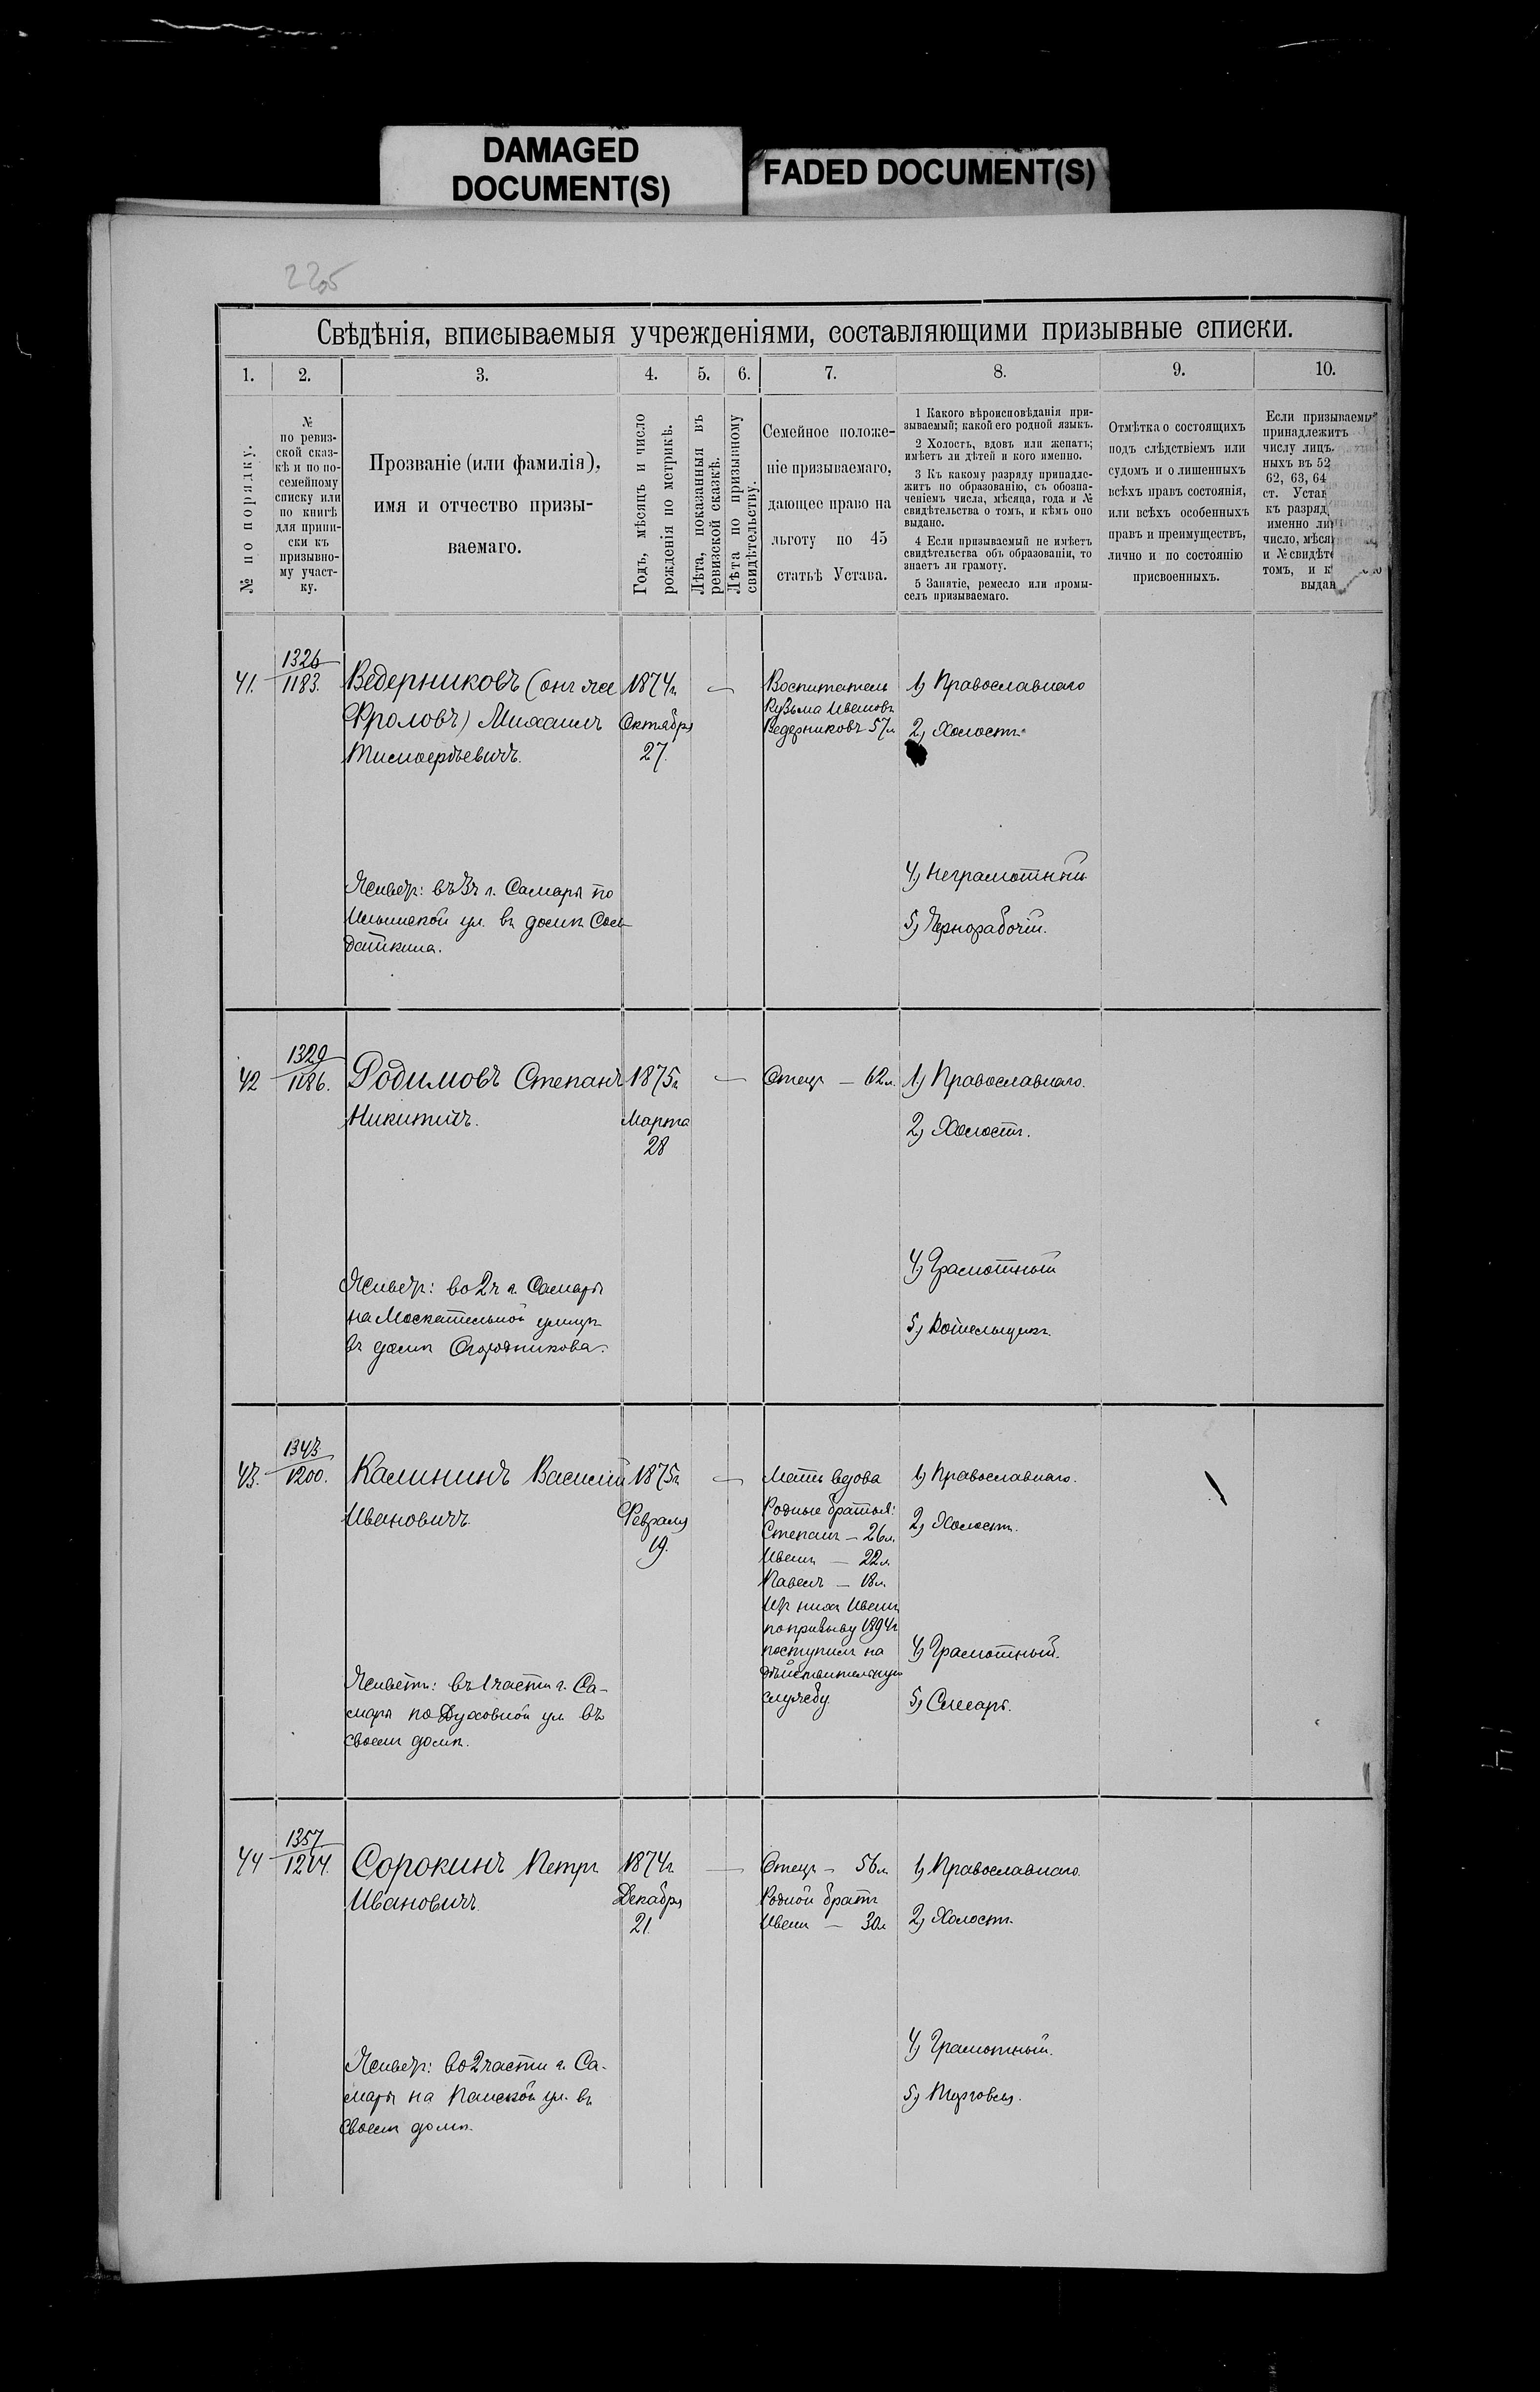 DAMAGED
DOCUMENT(S)
FADED DOCUMENT(S)
225
Свѣдѣнія, вписываемыя учрежденіями, составляющими призывные списки.
1. 2. 3. 4. 5. 6. 7. 8. 9. 10.
№ по порядку.
№
по ревиз-
ской сказ-
кѣ и по по-
семейному
списку или
по книгѣ
для припи-
ски къ
призывно-
му участ-
ку.
Прозваніе (или фамилія),
имя и отчество призы-
ваемаго.
Годъ, мѣсяцъ и число
рожденія по метрикѣ.
Лѣта, показанныя въ
ревизской сказкѣ.
Лѣта по призывному
свидѣтельству.
Семейное положе-
ніе призываемаго,
дающее право на
льготу по 45
статьѣ Устава.
1 Какого вѣроисповѣданія при-
зываемый; какой его родной языкъ.
2 Холостъ, вдовъ или женатъ;
имѣетъ ли дѣтей и кого именно.
3 Къ какому разряду принадле-
житъ по образованію, съ обозна-
ченіемъ числа, мѣсяца, года и №
свидѣтельства о томъ, и кѣмъ оно
выдано.
4 Если призываемый не имѣетъ
свидѣтельства объ образованіи, то
знаетъ ли грамоту.
5 Занятіе, ремесло или промы-
селъ призываемаго.
Отмѣтка о состоящихъ
подъ слѣдствіемъ или
судомъ и о лишенныхъ
всѣхъ правъ состоянія,
или всѣхъ особенныхъ
правъ и преимуществъ,
лично и по состоянію
присвоенныхъ.
Если призываемы
принадлежитъ
числу лицъ
ныхъ въ 52
62, 63, 64
ст. Устав
къ разряд
именно ли
число, мѣся
и № свидѣте
томъ, и к
выдан
41.
1326
1183.
Ведерниковъ (онъ же
Фроловъ) Михаилъ
Тимоѳеевичъ.
1874г
Октября
27.
—
Воспитатель
Кузьма Ивановъ
Ведерниковъ 57л
1) Православнаго
2) Холостъ.
4) Неграмотный
5) Чернорабочій.
Живетъ: въ 3ч г. Самары по
Ильинской ул. въ домѣ Сол-
даткина.
42
1329
1186.
Родимовъ Степанъ
Никитичъ.
1875г
Марта
28
—
Отецъ — 62л.
1) Православнаго.
2) Холостъ.
4) Грамотный
5) Котельщикъ.
Живетъ: во 2ч г. Самары
на Москательной улицѣ
въ домѣ Огородникова.
43.
1343
1200.
Калининъ Василій
Ивановичъ.
1875г
Февраля
19.
—
Мать вдова
Родные братья:
Степанъ — 26л.
Иванъ — 22л.
Павелъ — 18л.
Изъ нихъ Иванъ
по призыву 1894г
поступилъ на
дѣйствительную
службу.
1) Православнаго.
2) Холостъ.
4) Грамотный.
5) Слесарь.
Живетъ: въ 1 части г. Са-
мары по Духовной ул. въ
своемъ домѣ.
44
1357.
1214.
Сорокинъ Петръ
Ивановичъ.
1874г
Декабря
21.
—
Отецъ — 56л
Родной братъ
Иванъ — 30л
1) Православнаго
2) Холостъ.
4) Грамотный.
5) Торговля.
Живетъ: во 2 части г. Са-
мары на Панской ул. въ
своемъ домѣ.